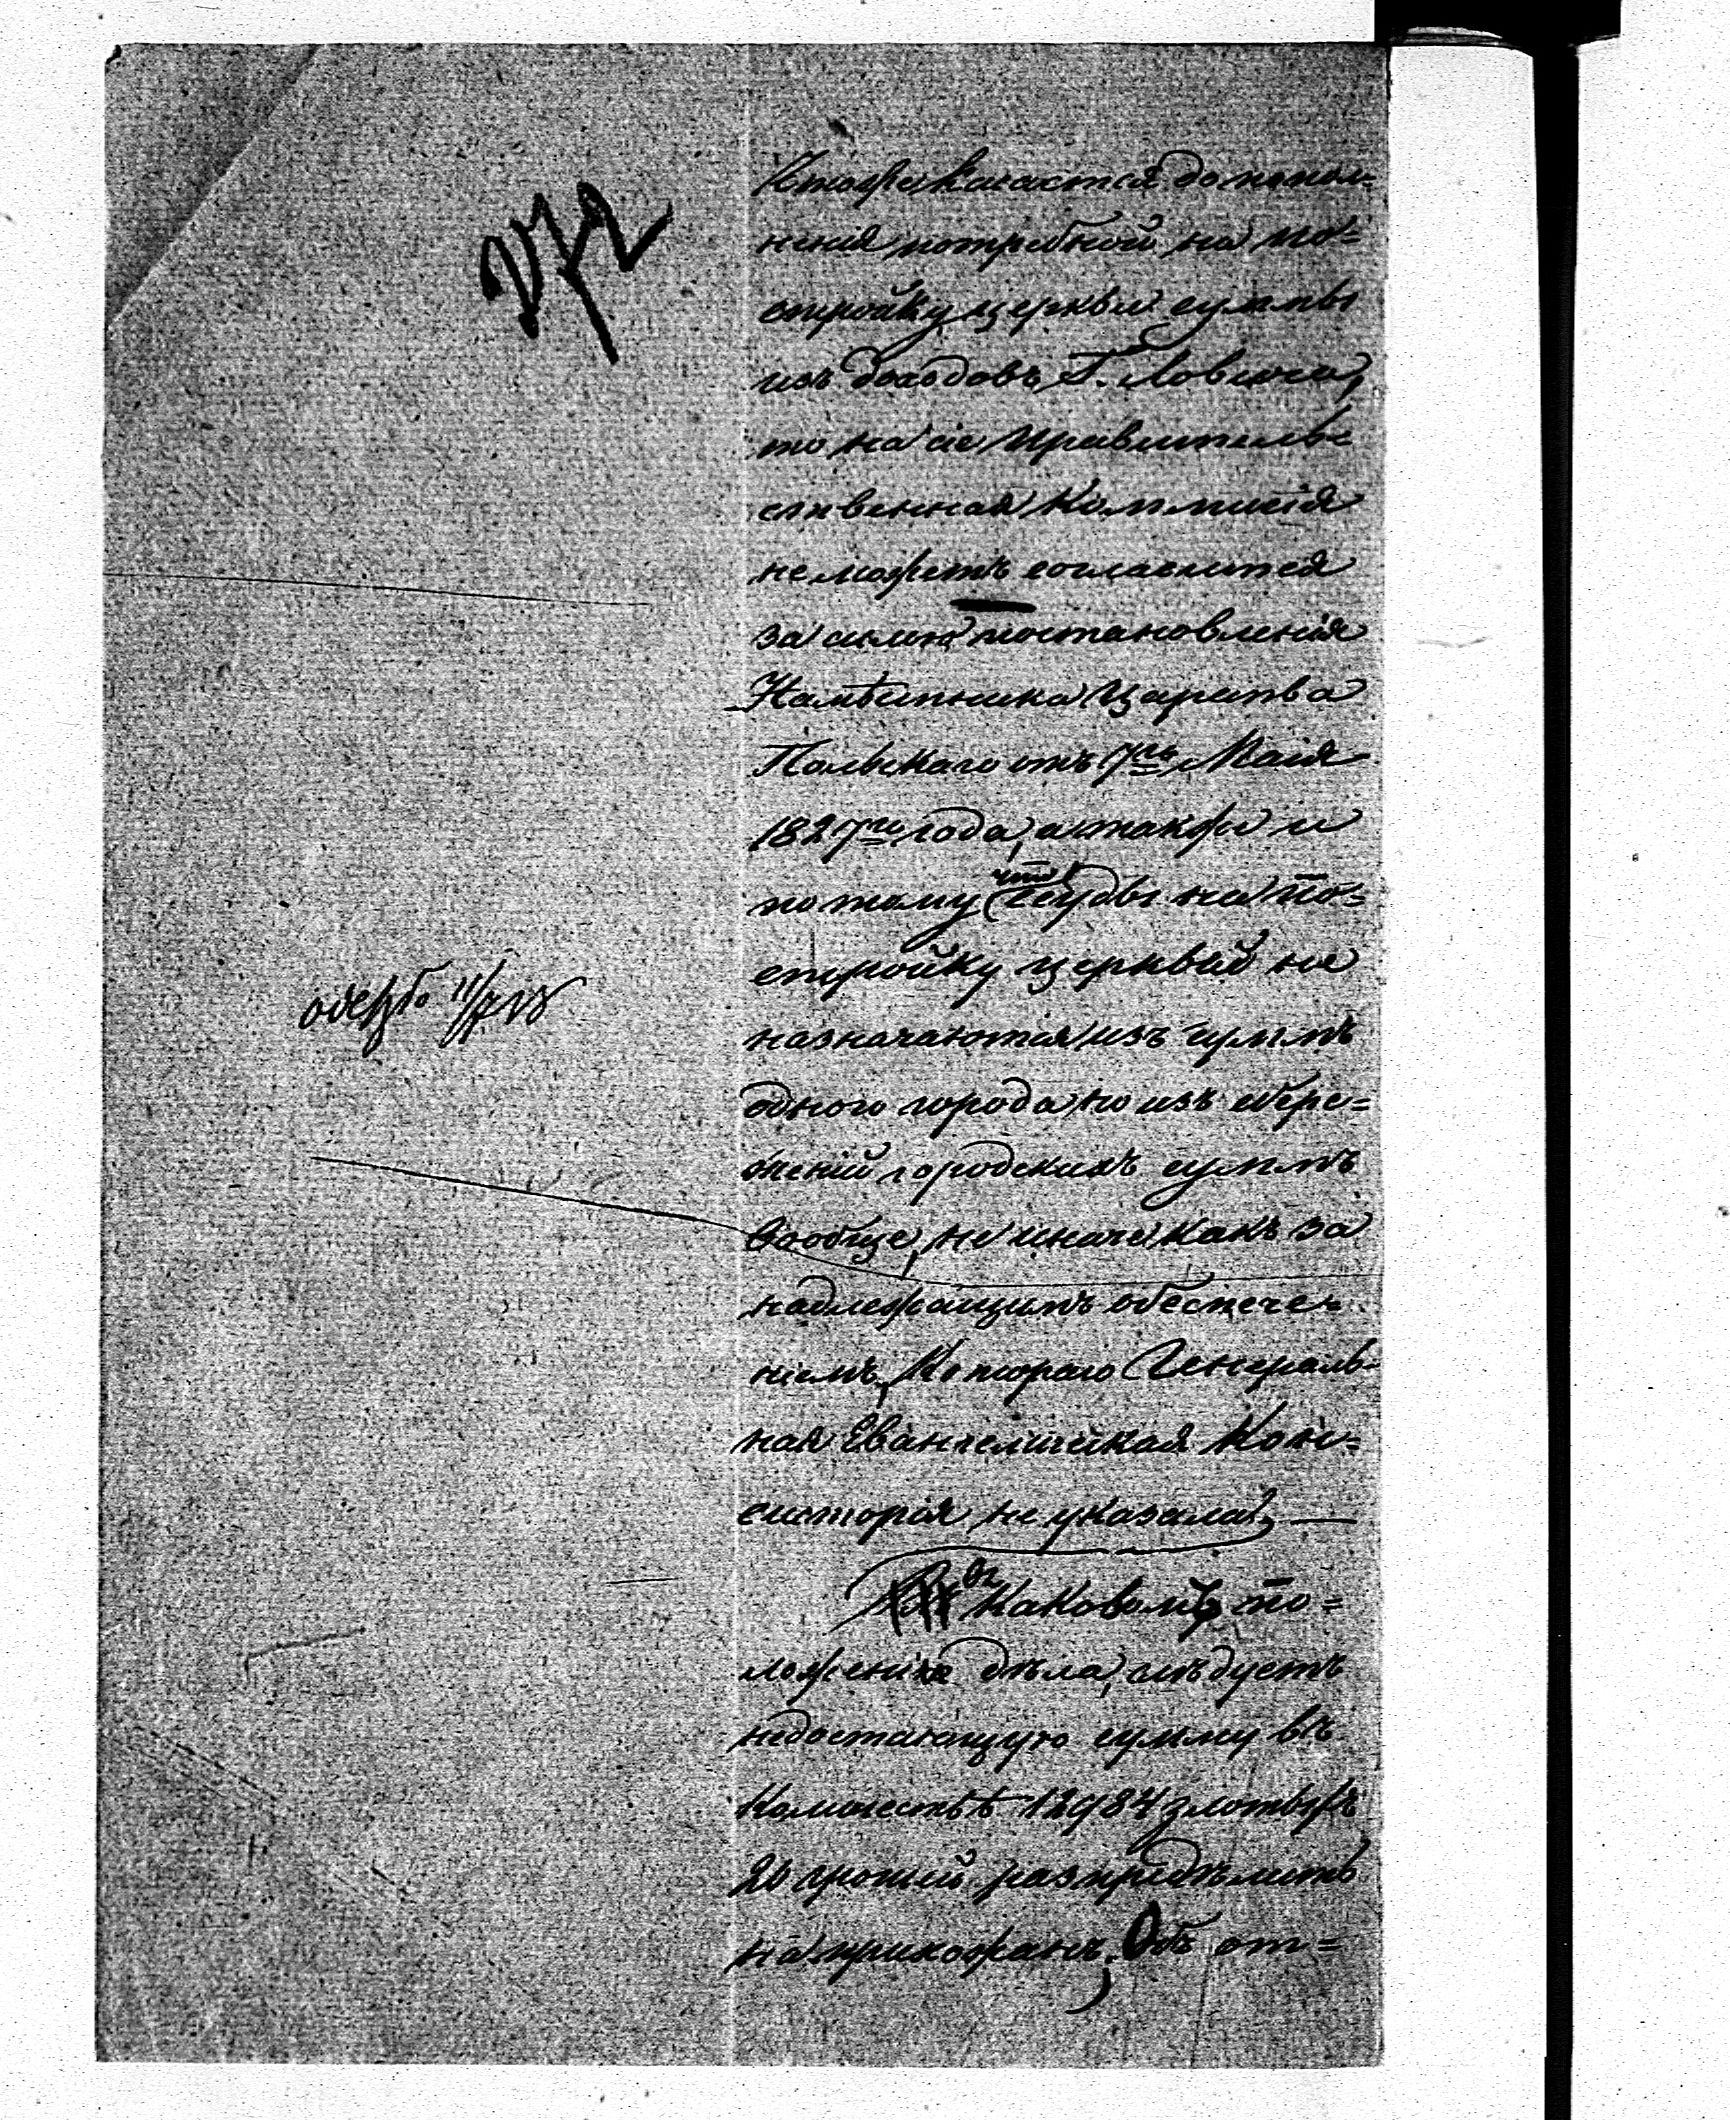 272
Чтоже касается дополне-
нія потребной на по=
стройку церкви суммы
изъ доходовъ Г. Ловича,
то на сіе Правитель-
ственная Коммисія
не можетъ согласится
за силою постановленія
Намѣстника Царства
Польскаго отъ 7го Маія
1827го года, а также и
потому что ссуды на по=
стройку церквей не
назначаются изъ суммъ
одного города, но изъ сбере=
женій городскихъ суммъ
вообще, не иначе какъ за
надлежащимъ обеспече-
ніемъ, Котораго Генераль-
ная Евангелическая Кон=
систорія не указала. —
въ каковомъ по=
ложеніи дѣла, слѣдуетъ
недостающую сумму въ
количествѣ 12984 злотыхъ
20 грошей распредѣлить
на прихожанъ. Объ от=